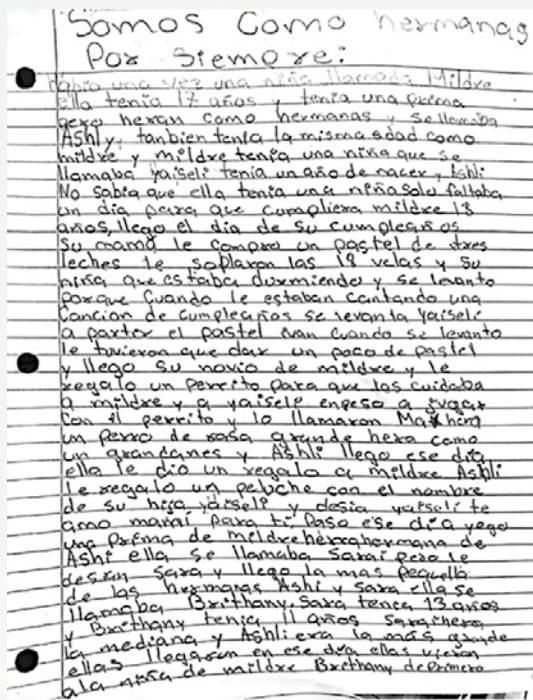 Somos Como hermanas
Por Siempre:
Había una vez una niña llamada Mildre
ella tenía 17 años y tenía una prima
pero heran como hermanas y se llamaba
Ashly, tanbien tenía la misma edad como
mildre y mildre tenía una niña que se
llamaba yaiseli tenia un año de nacer y Ashli
No sabía que ella tenia una niña solo faltaba
un día para que cumpliera mildre 18
años, llego el dia de su cumpleaños
Su mamá le compro un pastel de stres
leches le soplaron las 18 velas y su
niña que estaba durmiendo y se levanto
porque cuando le estaban cantando una
cancion de cumpleaños se levanta yaiseli
a partir el pastel ivan cuando se levanto
le tuvieron que dar un poco de pastel
y llego su novio de mildre y le
regalo un perrito para que los cuidaba
a mildre y a yaiseli enpeso a jugar
con el perrito y lo llamaron
un perro de rasa grande hera como
un grandanes y Ashli llego ese día
ella le dio un regalo a mildre Ashli
le regalo un peluche con el nombre
de su hija yaiseli y desia yaiseli te
amo para ti paso ese día yego
una prima de mildre hera hermana de
Ashi ella se llamaba Sarai pero le
desian Sara y llego la mas pequeña
de las hermanas Ashi y Sara ella se
llamaba Brithany, Sara tenea 13 años
y Brithany tenia 11 años Sara hera
la mediana y Ashli era la más grande
ellas llegaron en ese día ellas vieron
a la niña de mildre Brethany de primero